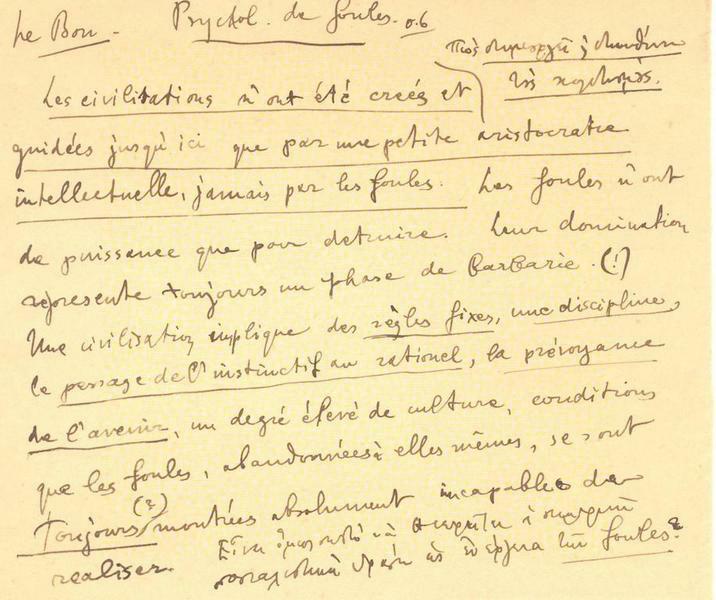 Le Bon - Psychol. de foules. σ.6
Πῶς
τῆς
Les civilisations n'ont été creés et
guidées jusqu'ici que par une petite aristocratie
intellectuelle, jamais par les foules. Les foules n'ont
de puissance que pour detruire. Leur domination
represente toujours un phase de barbarie. (!)
Une civilisation implique des règles fixes, une discipline,
le passage de l'instinctif au rationel, la prévoyance
de l'avenir, un degré élevé de culture, conditions
que les foules, abandonnées à elles mêmes, se sont
Toujours (?) montrées absolument incapables de
realiser.
Εἶναι ὅμως σωστὸ νὰ θεωρῆται ἡ
foules?